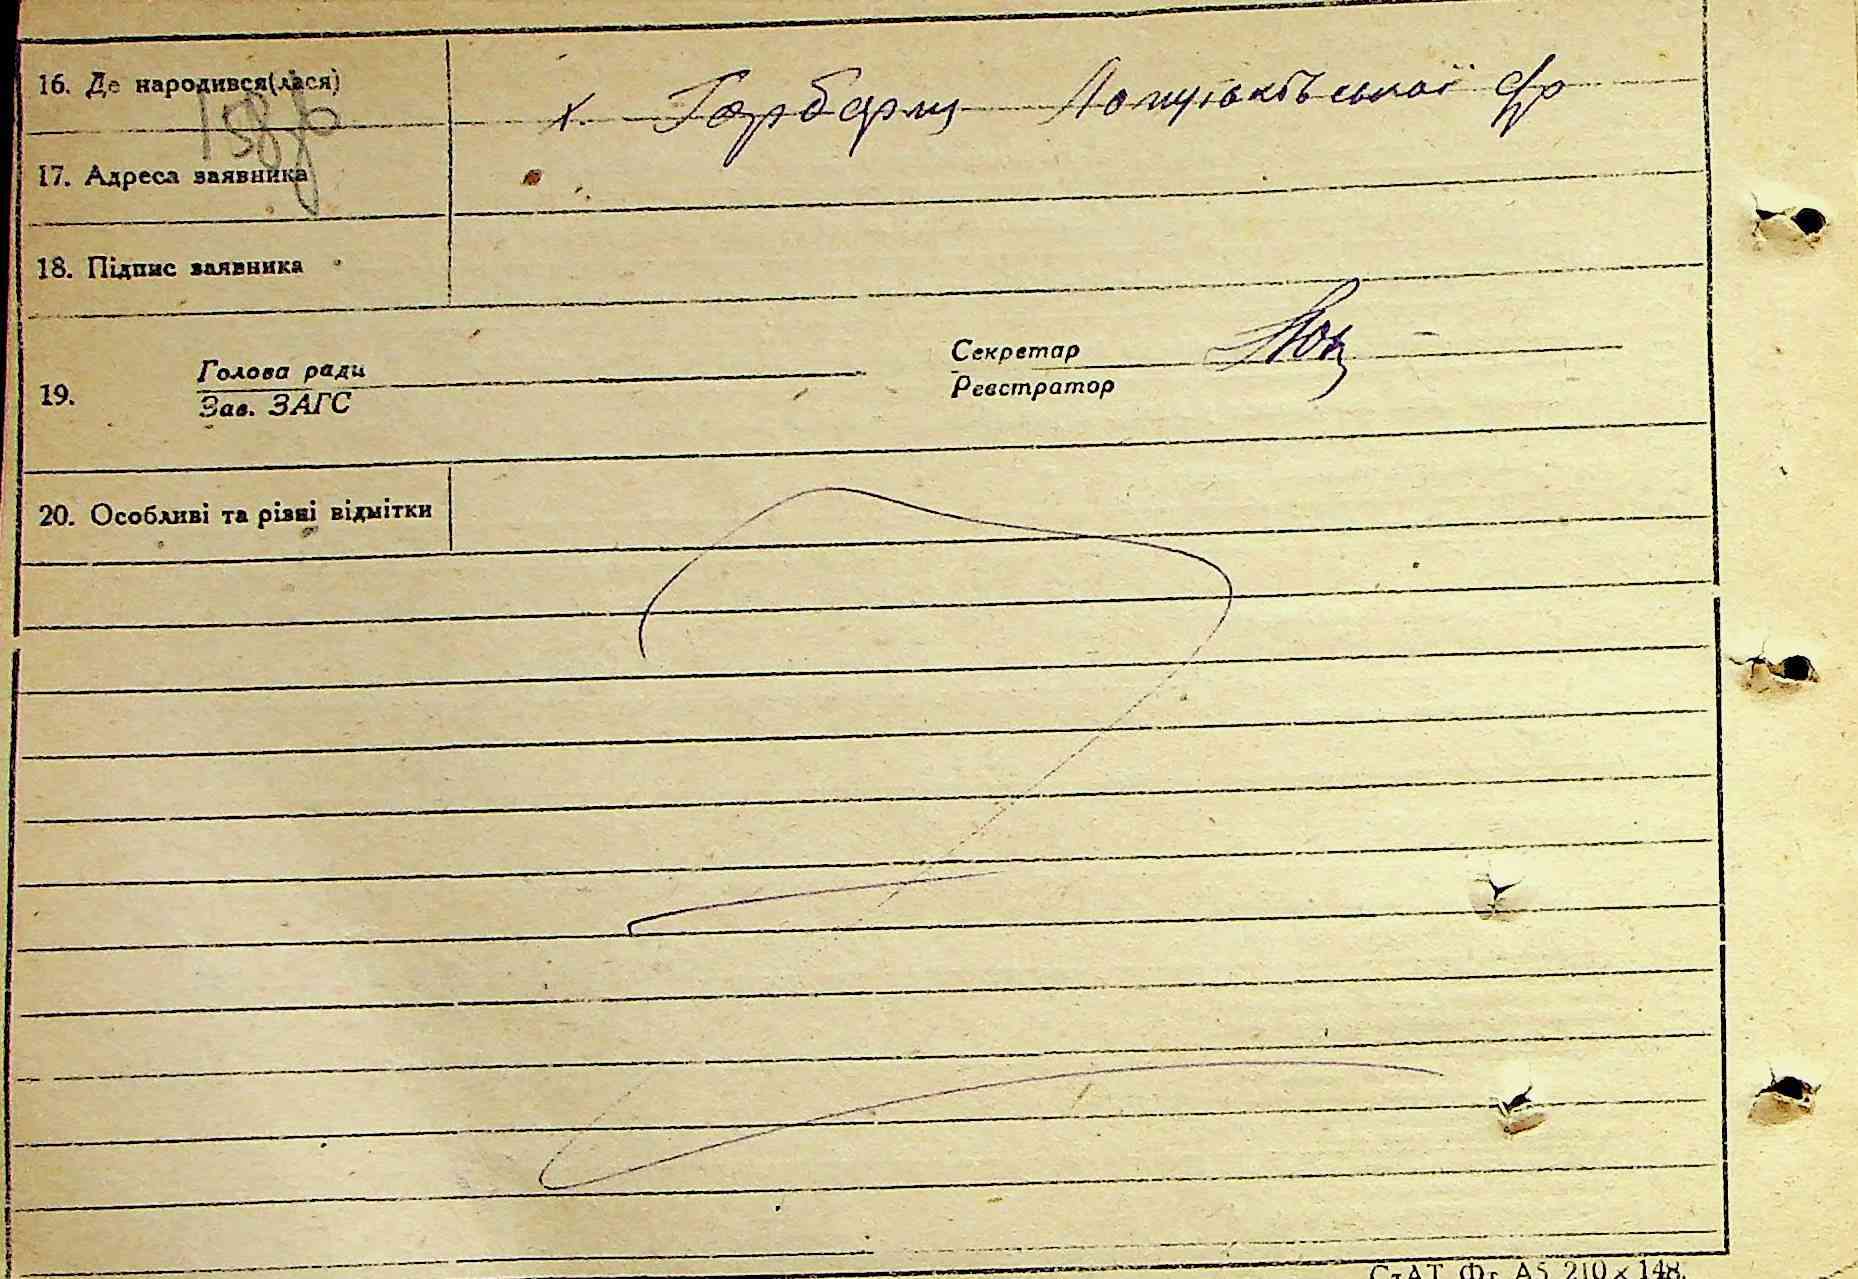 16. Де народився(лася) х. Гарбарі
158
17. Адреса заявника
18. Підпис заявника
19. Голова ради Секретар
Зав. ЗАГС Реєстратор
20. Особливі та різні відмітки
СтАТ. Фг. А5 210 × 148.